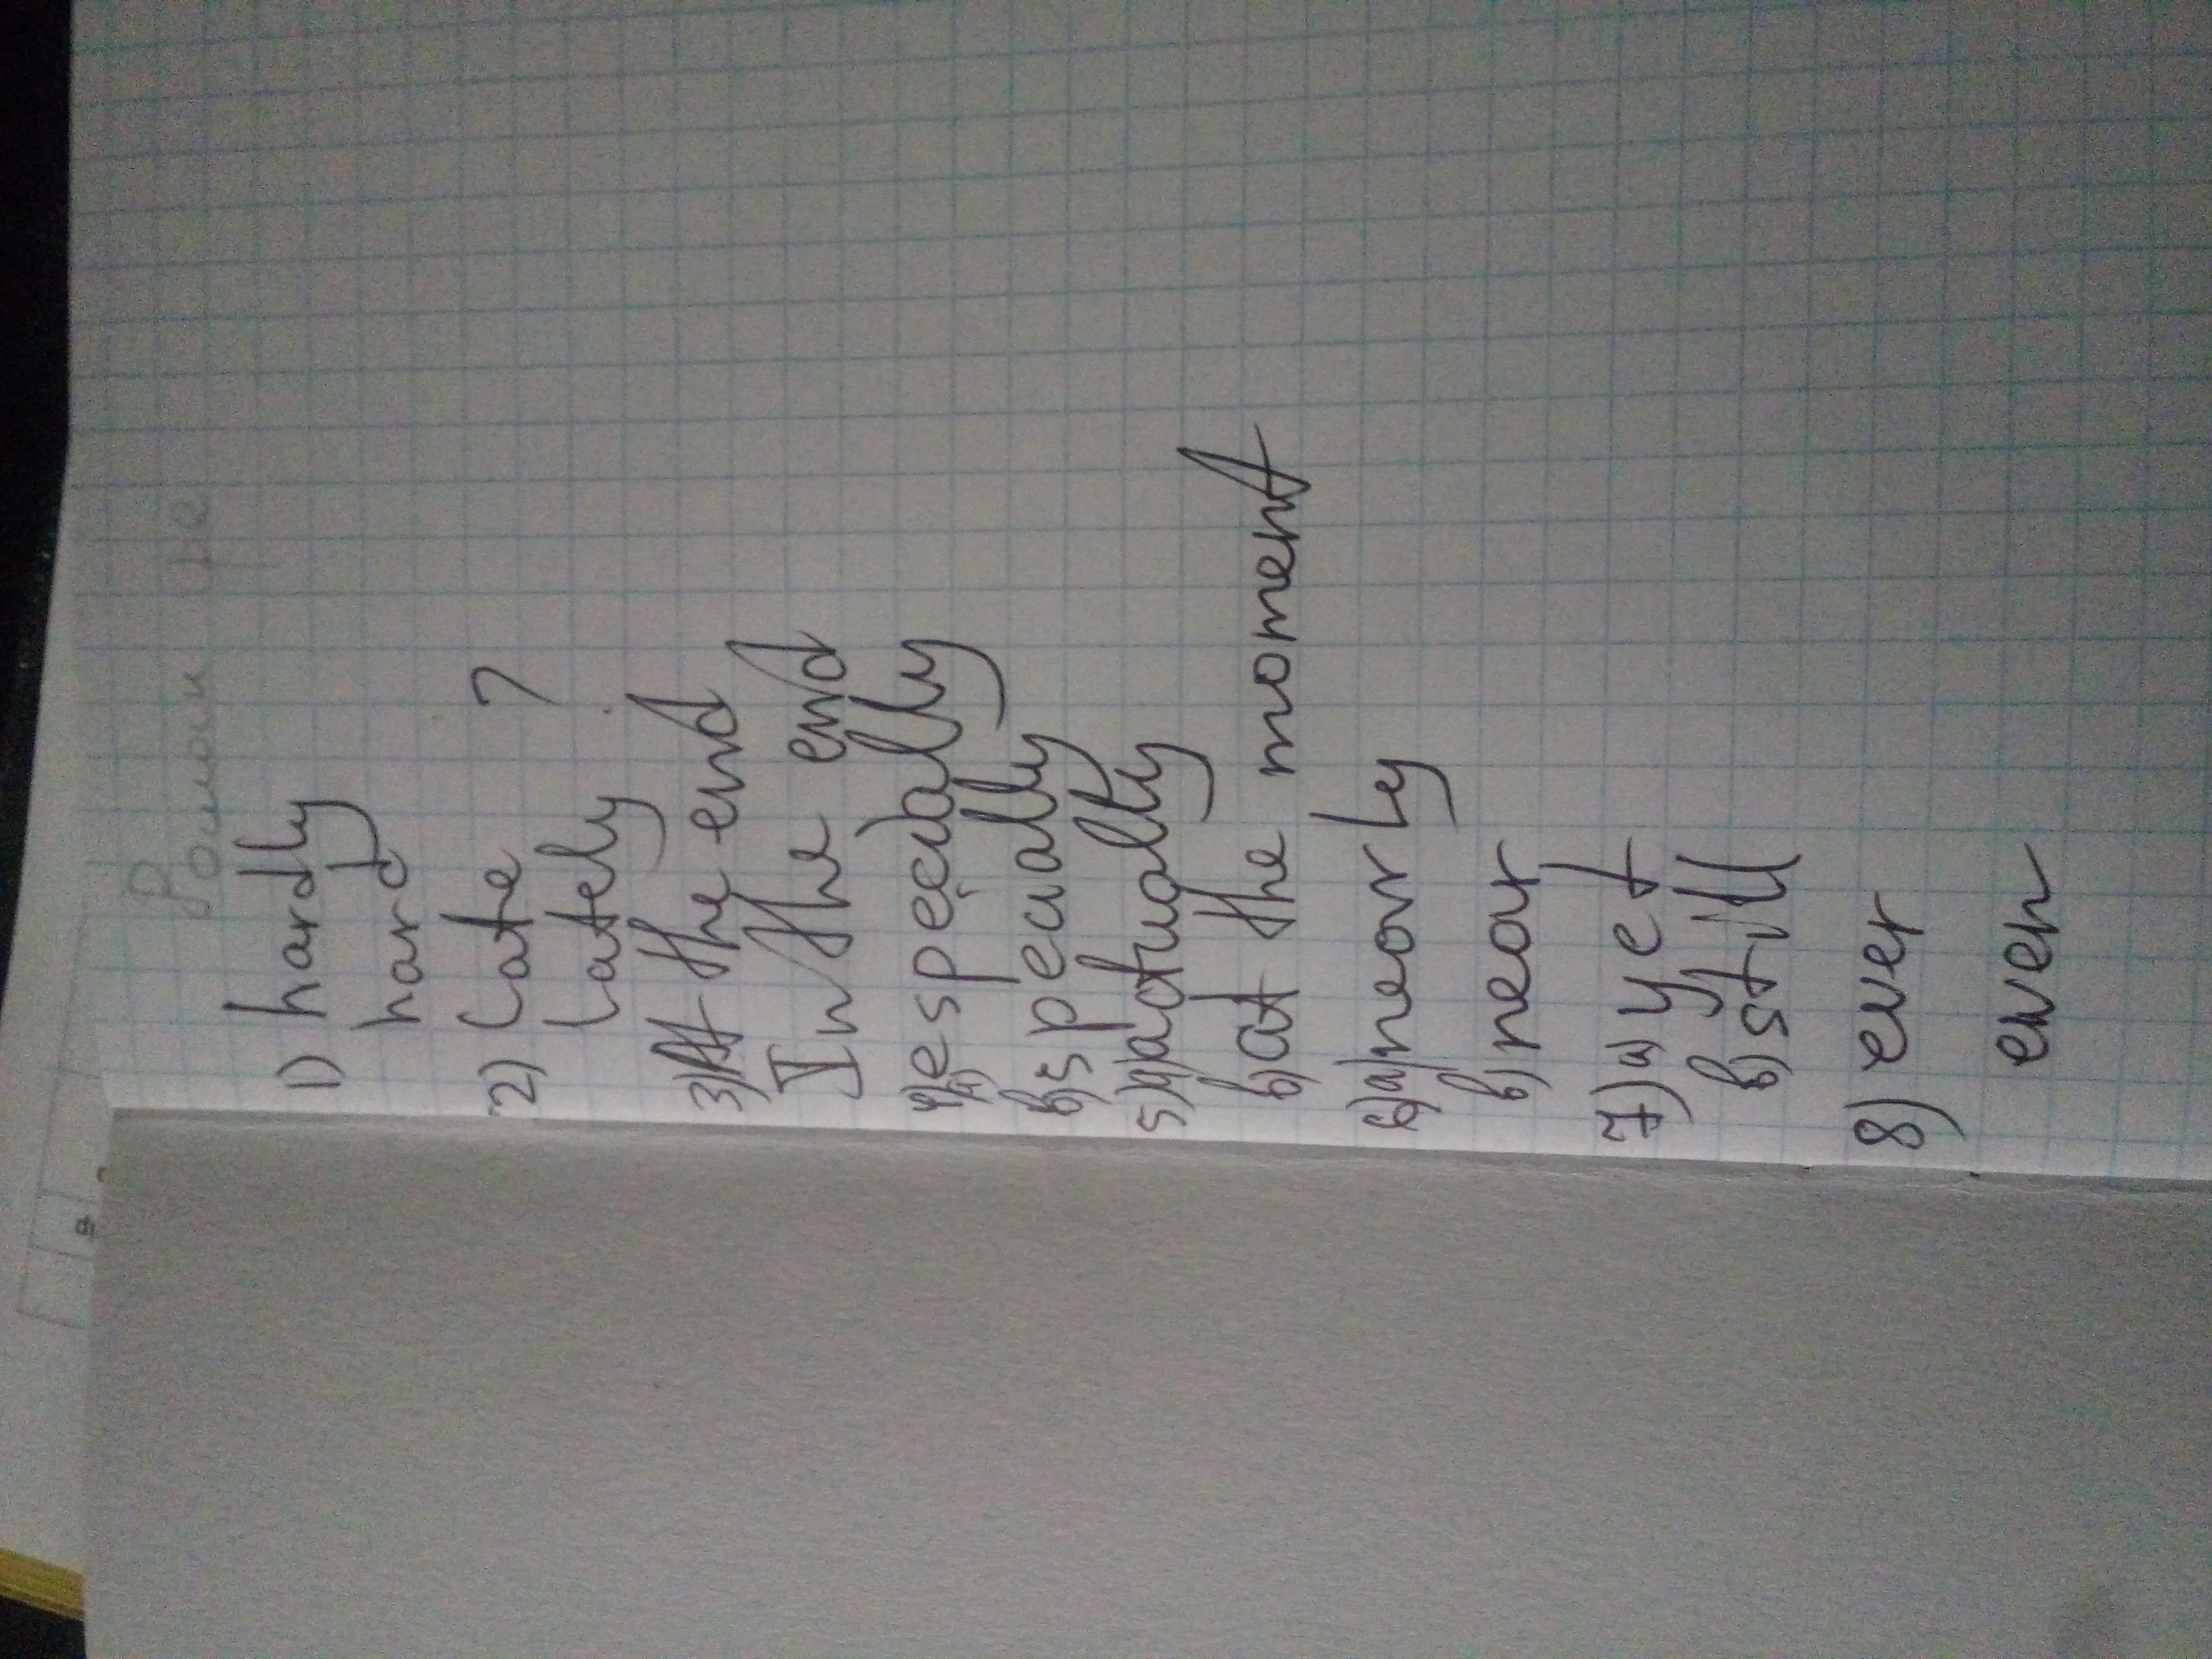 1) hardly
hard
2) Late ?
Lately
3) At the end
In the end
4) a) especially
b) specially
5) a) actually
b) at the moment
6) a) nearly
b) near
7) a) yet
b) still
8) ever
even